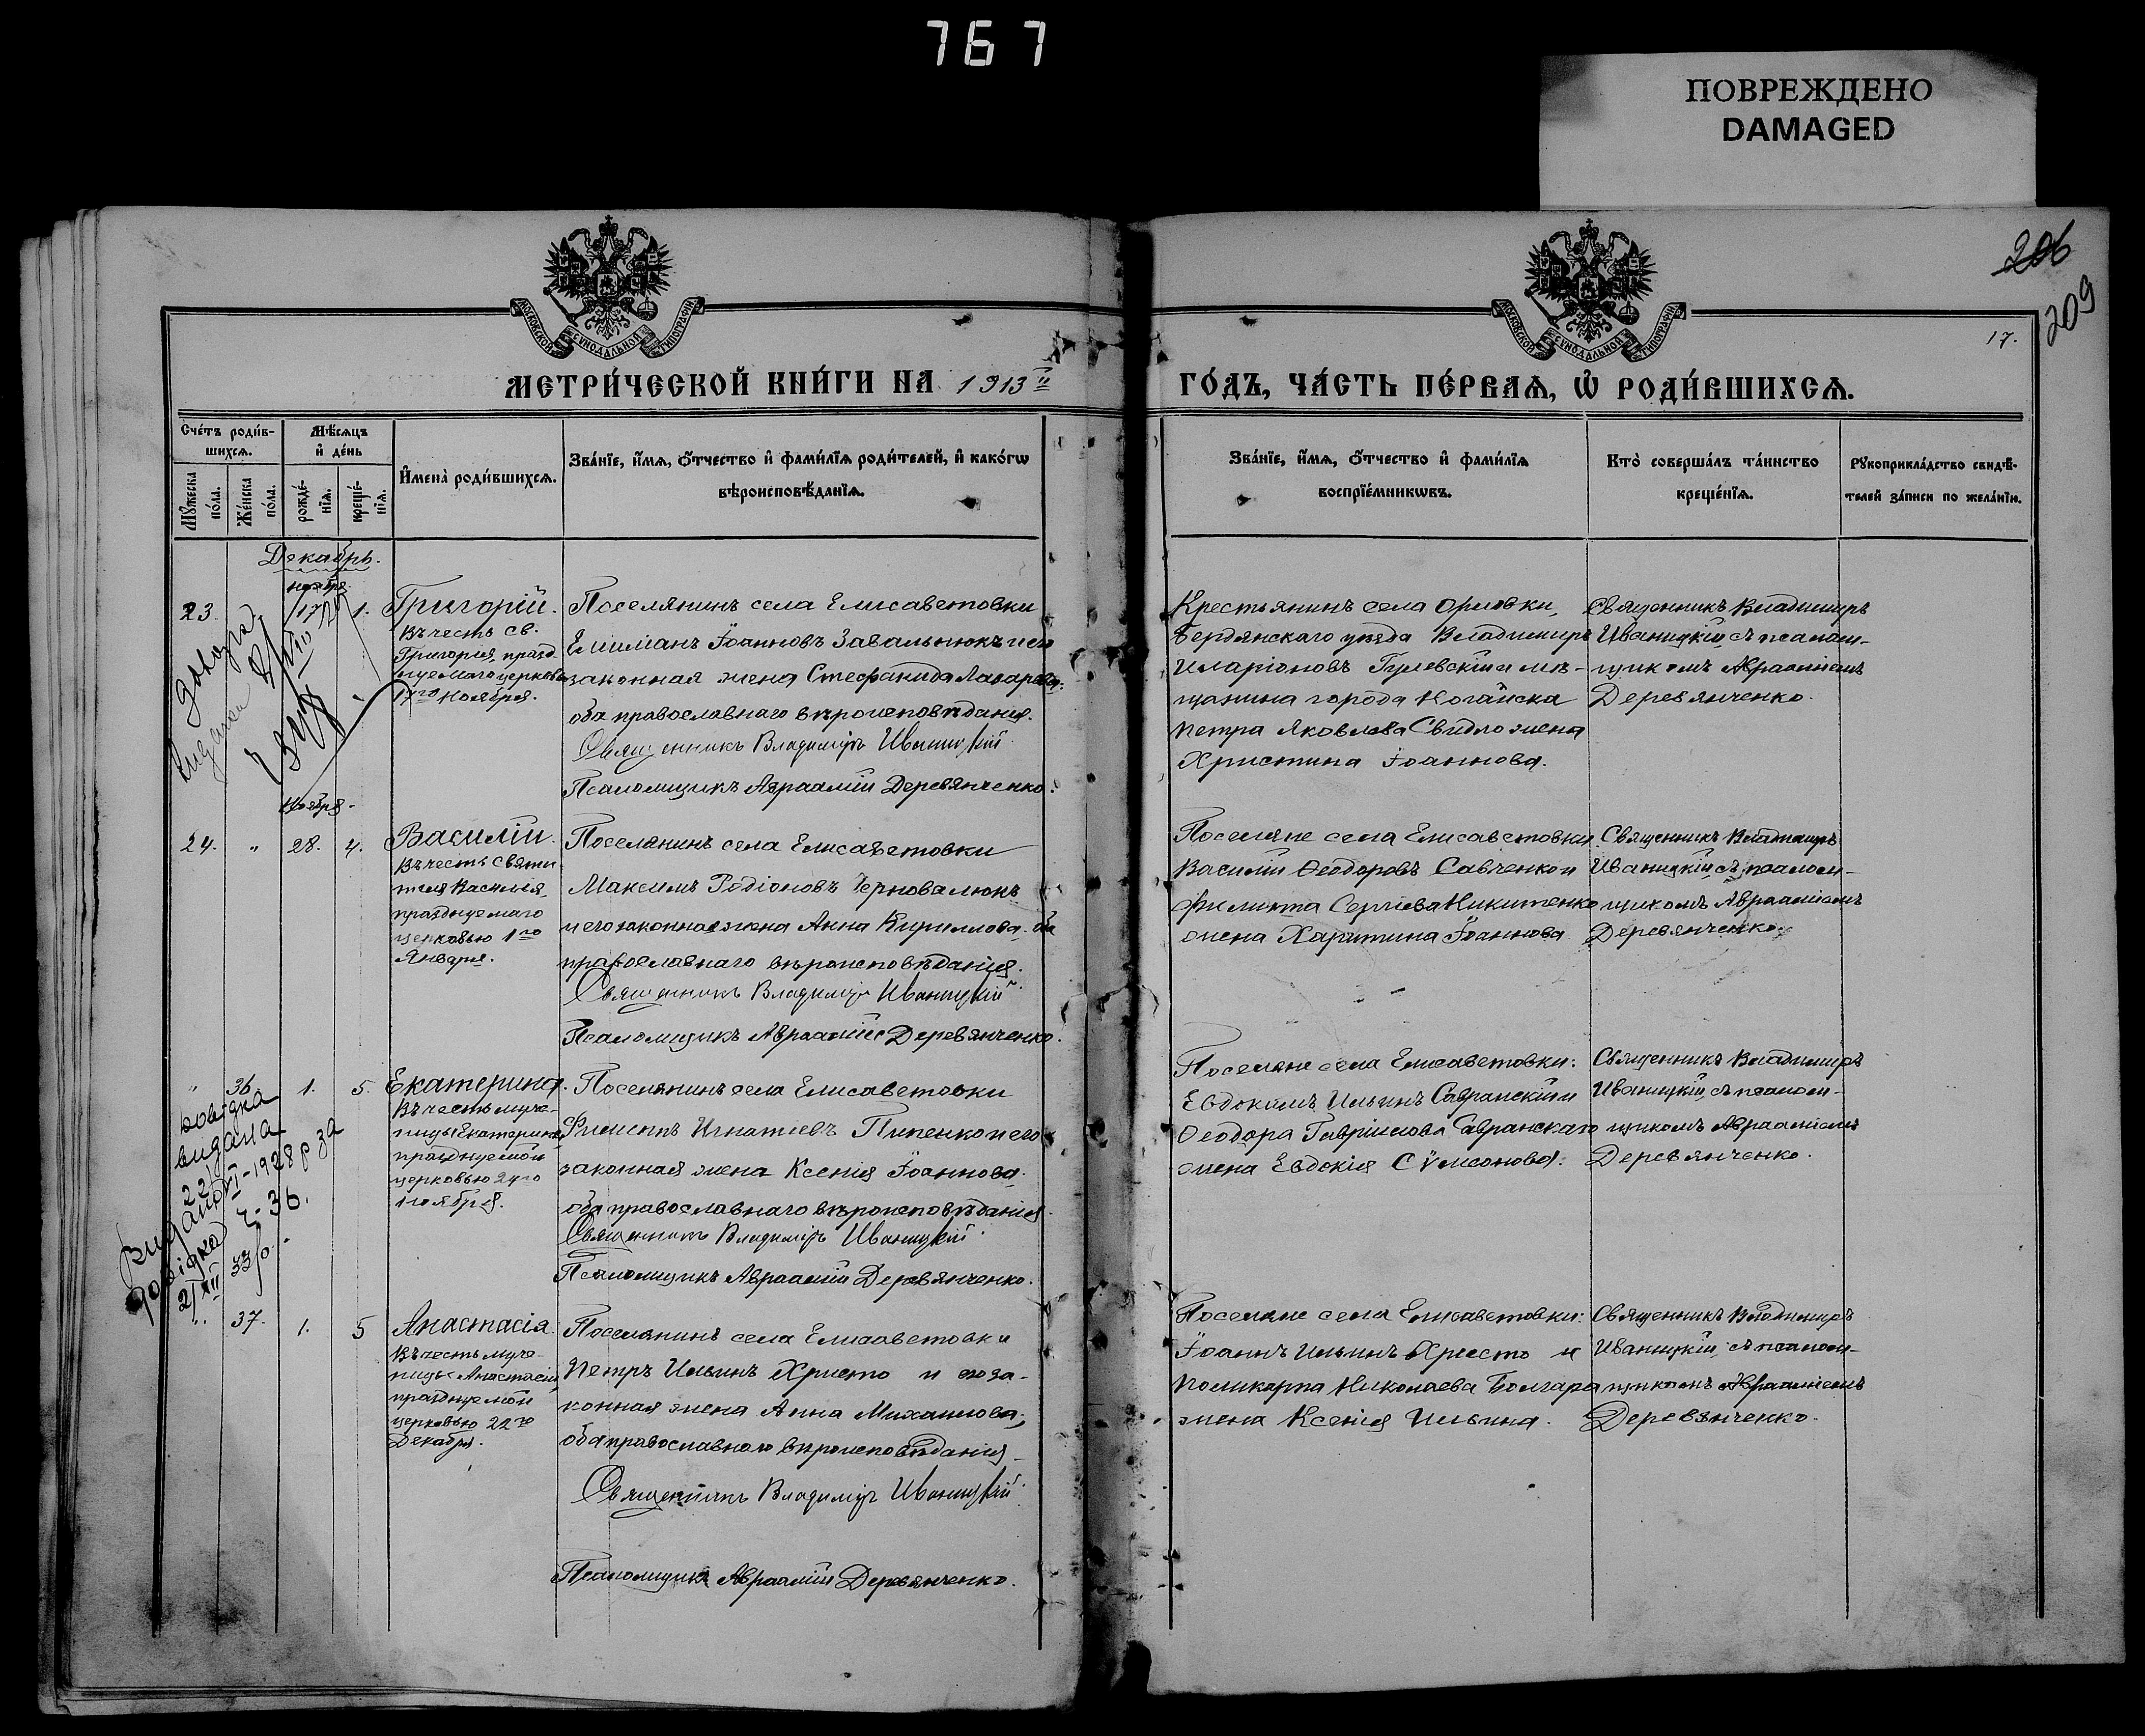 767
ПОВРЕЖДЕНО
DAMAGED
206
209
17.
МОСКОВСКОЙ СѴНОДАЛЬНОЙ ТИПОГРАФІИ
МОСКОВСКОЙ СѴНОДАЛЬНОЙ ТИПОГРАФІИ
МЕТРИ́ЧЕСКОЙ КНИ́ГИ НА 1913й
ГО́ДЪ, ЧА́СТЬ ПЕ́РВАѦ, Ѡ҆ РОДИ́ВШИХСѦ.
Сче́тъ роди́в-
шихсѧ.
Мѣ́сѧцъ
и҆ де́нь
Мꙋ́жеска по́ла.
Же́нска по́ла.
рожде́-
нїѧ.
креще́-
нїѧ.
И҆мена̀ роди́вшихсѧ.
Зва́нїе, и҆́мѧ, ѻ҆́тчество и҆ фами́лїѧ роди́телей, и҆ како́гѡ
вѣроисповѣ́данїѧ.
Зва́нїе, и҆́мѧ, ѻ҆́тчество и҆ фами́лїѧ
воспрїе́мникѡвъ.
Кто̀ соверша́лъ та́инство
креще́нїѧ.
Рꙋкоприкла́дство свидѣ́-
телей за́писи по жела́нїю.
Декабрь.
ноября
23.
17
1.
Григорій.
Въ честь св.
Григорія, празд
нуемаго церковью
17го Ноября.
Поселянинъ села Елисаветовки
Іоанновъ Завальнюкъ и его
законная жена Стефанида Лазарева;
оба православнаго вѣроисповѣданія.
Священникъ Владиміръ Иваницкій
Псаломщикъ Авраамій Деревянченко.
Крестьянинъ села Орловки,
Бердянскаго уѣзда Владимиръ
Иларіоновъ Гулевскій и мѣ-
щанина города Ногайска
Петра Яковлева Свидло жена
Христина Іоаннова.
Священникъ Владимиръ
Иваницкій, съ псалом-
щикомъ Аврааміемъ
Деревянченко.
Ноября
24.
"
28.
4.
Василій.
Въ честь святи
теля Василія,
празднуемаго
церковью 1го
Января.
Поселянинъ села Елисаветовки
Максимъ Родіоновъ Черновалюкъ
и его законная жена Анна Кириллова; оба
православнаго вѣроисповѣданія.
Священникъ Владиміръ Иваницкій
Псаломщикъ Авраамій Деревянченко.
Поселяне села Елисаветовки
Василій Ѳеодоровъ Савченко и
Филиппа Сергіева Никитенко
жена Харитина Іоаннова
Священникъ Владимиръ
Иваницкій, съ псалом-
щикомъ Аврааміемъ
Деревянченко.
"
36
1.
5.
довідка
видана
22/VI-1928р за
Ч-36.
видано
довідка
21/XII 33р.
Екатерина.
Въ честь муче-
ницы Екатерины,
празднуемой
церковью 24го
Ноября.
Поселянинъ села Елисаветовки
Филиппъ Игнатіевъ Пипенко и его
законная жена Ксенія Іоаннова;
оба православнаго вѣроисповѣданія.
Священникъ Владиміръ Иваницкій.
Псаломщикъ Авраамій Деревянченко.
Поселяне села Елисаветовки:
Евдокимъ Ильинъ Савранскій и
Ѳеодора Гавріилова Савранскаго
жена Евдокія Сѵмеонова.
Священникъ Владимиръ
Иваницкій, съ псалом-
щикомъ Аврааміемъ
Деревянченко.
"
37.
1.
5
Анастасія.
Въ честь муче-
ницы Анастасіи,
празднуемой
церковью 22го
Декабря.
Поселянинъ села Елисаветовки
Петръ Ильинъ Христо и его за-
конная жена Анна Михаилова;
оба православнаго вѣроисповѣданія
Священникъ Владиміръ Иваницкій.
Псаломщикъ Авраамій Деревянченко.
Поселяне села Елисаветовки:
Іоаннъ Ильинъ Христо и
Поликарпа Николаева Болгара
жена Ксенія Ильина.
Священникъ Владимиръ
Иваницкій, съ псалом-
щикомъ Аврааміемъ
Деревянченко.